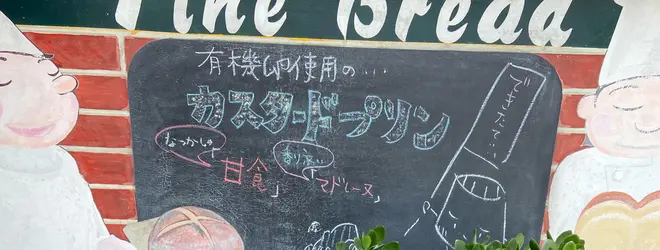 Fine Bread
有機卵使用の…
カスタードプリン
できたて…
なつかしの
「甘食」
「マドレーヌ」